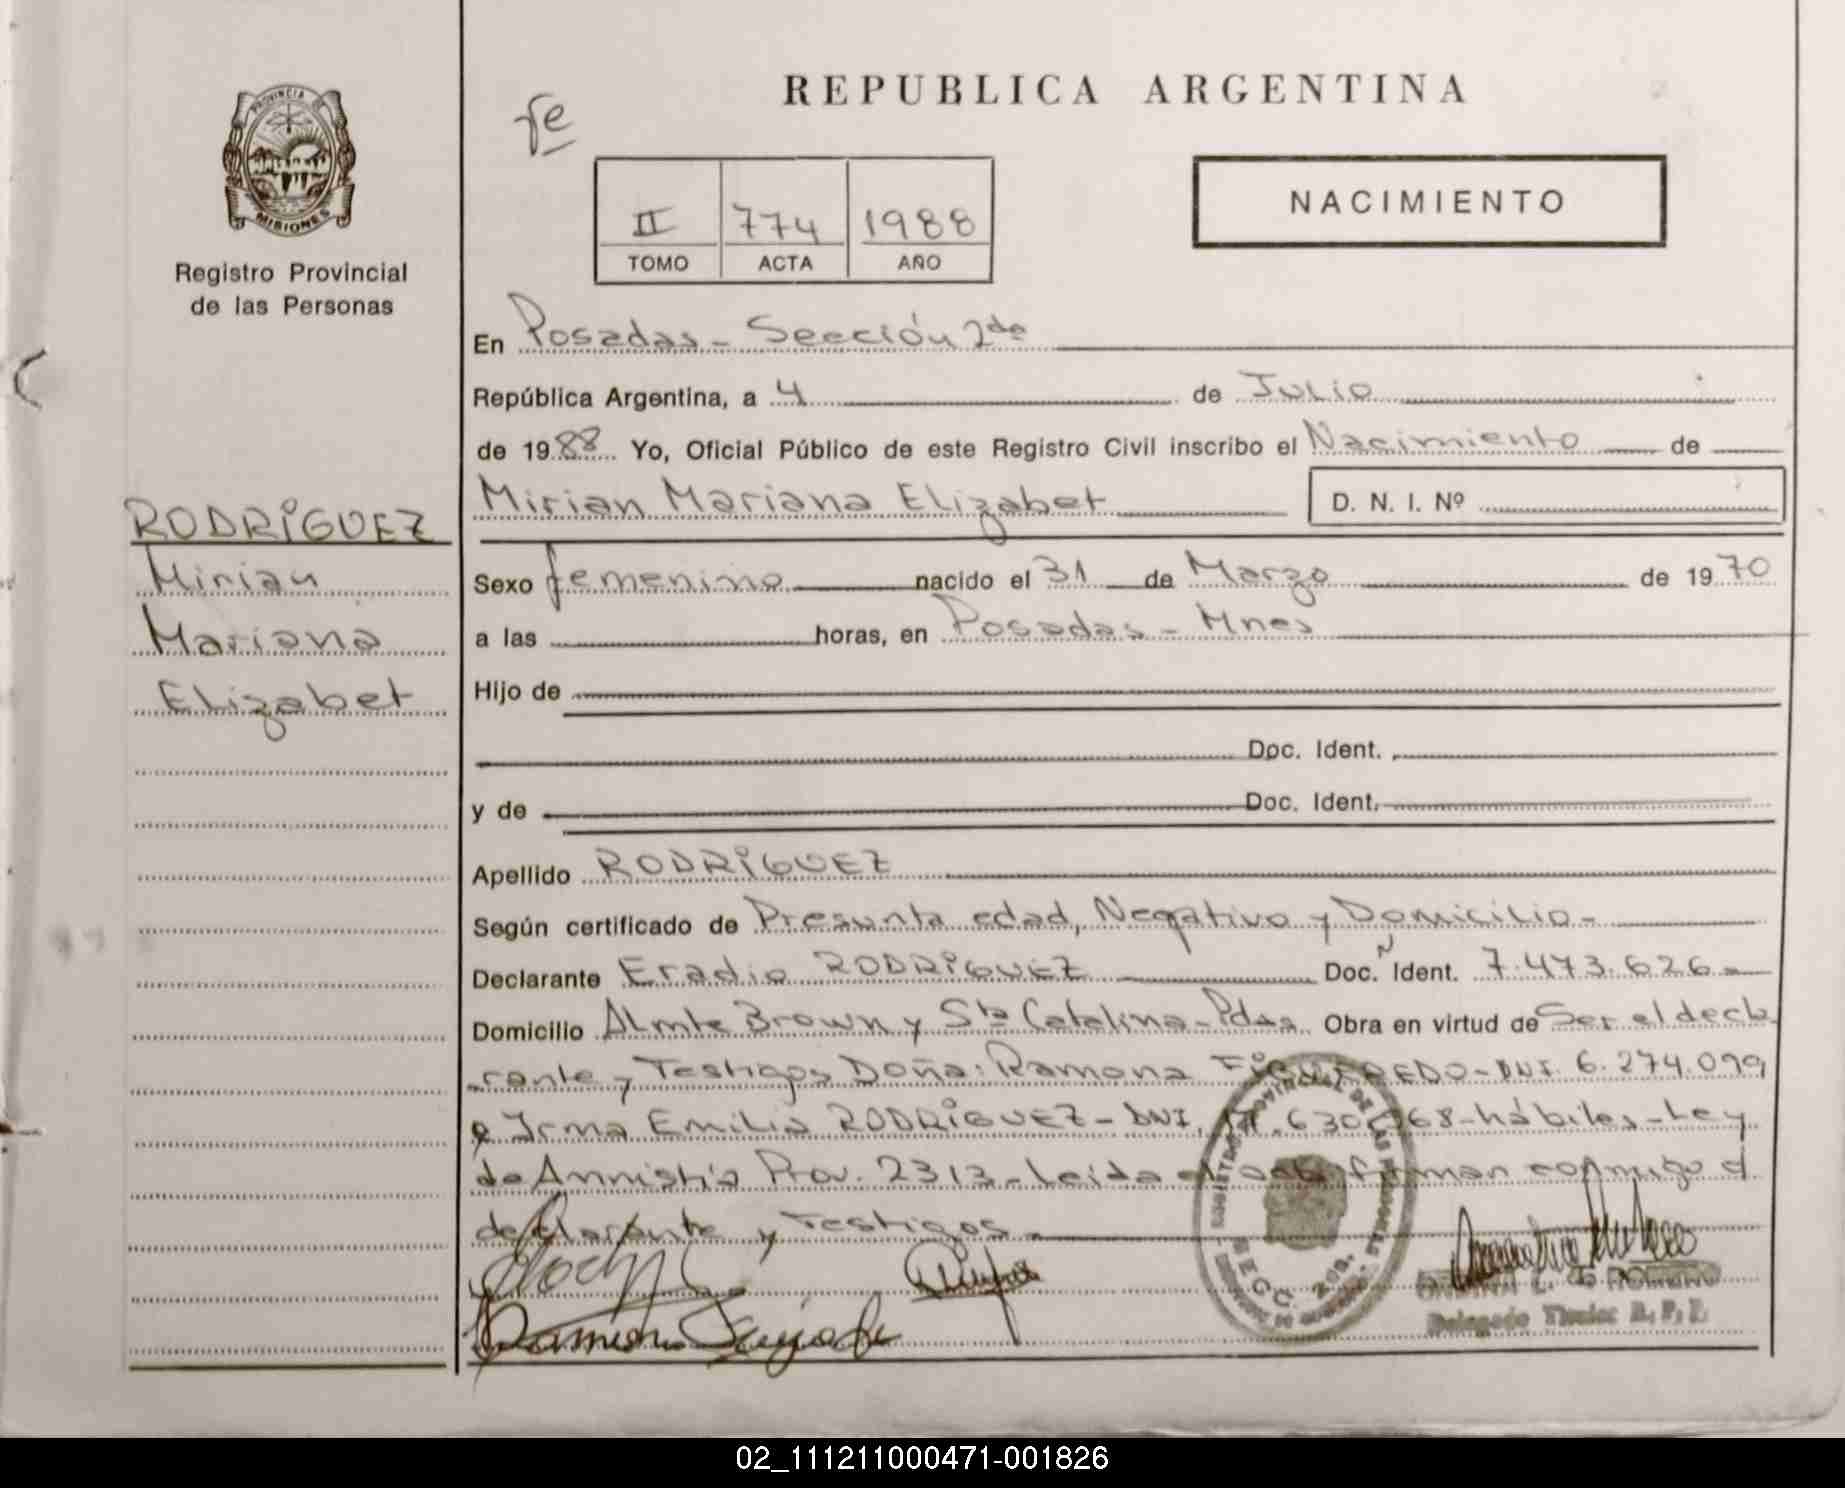 PROVINCIA DE
MISIONES
Registro Provincial
de las Personas
RODRÍGUEZ
Mirian
Mariana
Elizabet
REPUBLICA ARGENTINA
II 774 1988
TOMO ACTA AÑO
NACIMIENTO
En Posadas - Sección 2da
República Argentina, a 4 de Julio
de 1988 Yo, Oficial Público de este Registro Civil inscribo el Nacimiento de
Mirian Mariana Elizabet D. N. I. Nº
Sexo femenino nacido el 31 de Marzo de 1970
a las horas, en Posadas - Mnes
Hijo de
Doc. Ident.
y de Doc. Ident.
Apellido RODRÍGUEZ
Según certificado de Presunta edad, Negativo y Domicilio-
Declarante Eradio RODRÍGUEZ Doc. Ident. 7.473.626-
Domicilio Almte Brown y Sta Catalina - Pdas Obra en virtud de Ser el decla
rante y Testigos Doña: Ramona DNI. 6.274.099
e Irma Emilia RODRÍGUEZ - DNI. hábiles - Ley
de Amnistía Prov. 2313 - Leída el acta firman conmigo el
declarante y Testigos
Ramona
Delegado Titular R. P. P.
02_111211000471-001826